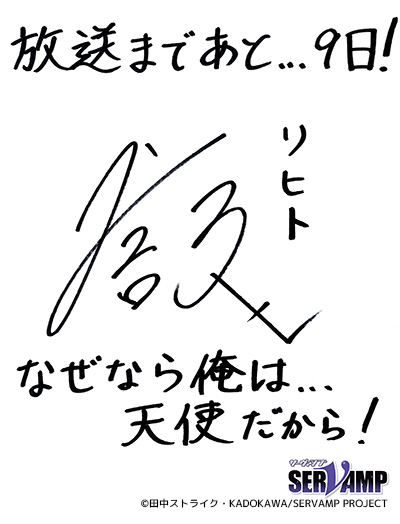 放送まであと...9日!
リヒト
なぜなら俺は...
天使だから!
サーヴァンプ
SERVAMP
©田中ストライク・KADOKAWA/SERVAMP PROJECT